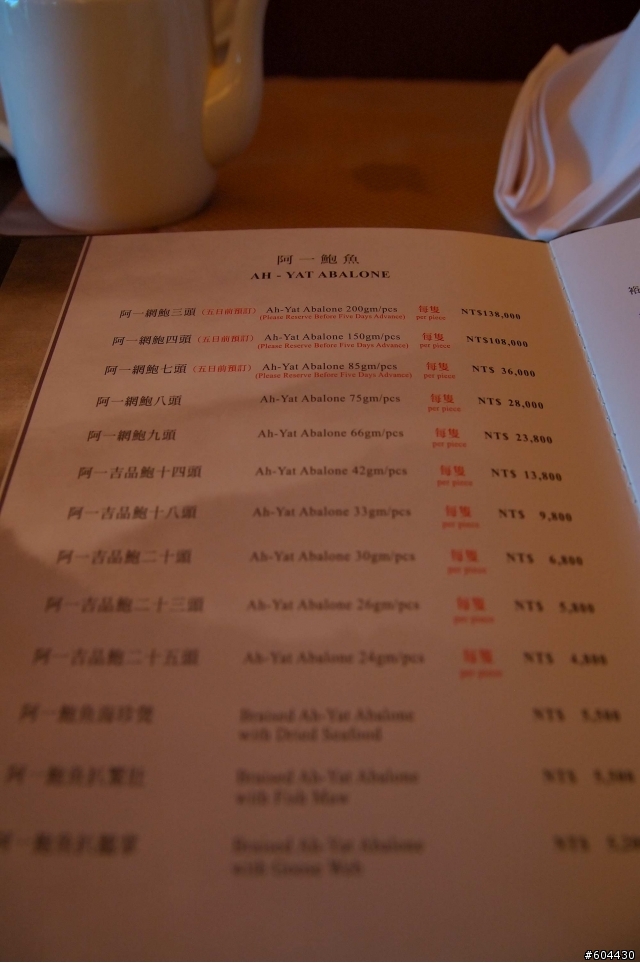 阿一鮑魚
AH - YAT ABALONE
阿一網鮑三頭 (五日前預訂) Ah-Yat Abalone 200gm/pcs 每隻 NT$138,000
(Please Reserve Before Five Days Advance) per piece
阿一網鮑四頭 (五日前預訂) Ah-Yat Abalone 150gm/pcs 每隻 NT$108,000
(Please Reserve Before Five Days Advance) per piece
阿一網鮑七頭 (五日前預訂) Ah-Yat Abalone 85gm/pcs 每隻 NT$ 36,000
(Please Reserve Before Five Days Advance) per piece
阿一網鮑八頭 Ah-Yat Abalone 75gm/pcs 每隻 NT$ 28,000
per piece
阿一網鮑九頭 Ah-Yat Abalone 66gm/pcs 每隻 NT$ 23,800
per piece
阿一吉品鮑十四頭 Ah-Yat Abalone 42gm/pcs 每隻 NT$ 13,800
per piece
阿一吉品鮑十八頭 Ah-Yat Abalone 33gm/pcs 每隻 NT$ 9,800
per piece
阿一吉品鮑二十頭 Ah-Yat Abalone 30gm/pcs 每隻 NT$ 6,800
per piece
阿一吉品鮑二十三頭 Ah-Yat Abalone 26gm/pcs 每隻 NT$ 5,800
per piece
阿一吉品鮑二十五頭 Ah-Yat Abalone 24gm/pcs 每隻 NT$ 4,800
per piece
阿一鮑魚海珍煲 Braised Ah-Yat Abalone NT$ 5,580
with Dried Seafood
阿一鮑魚扒 Braised Ah-Yat Abalone NT$
with Fish Maw
阿一鮑魚扒 Braised Ah-Yat Abalone NT$
with Goose Web
#604430